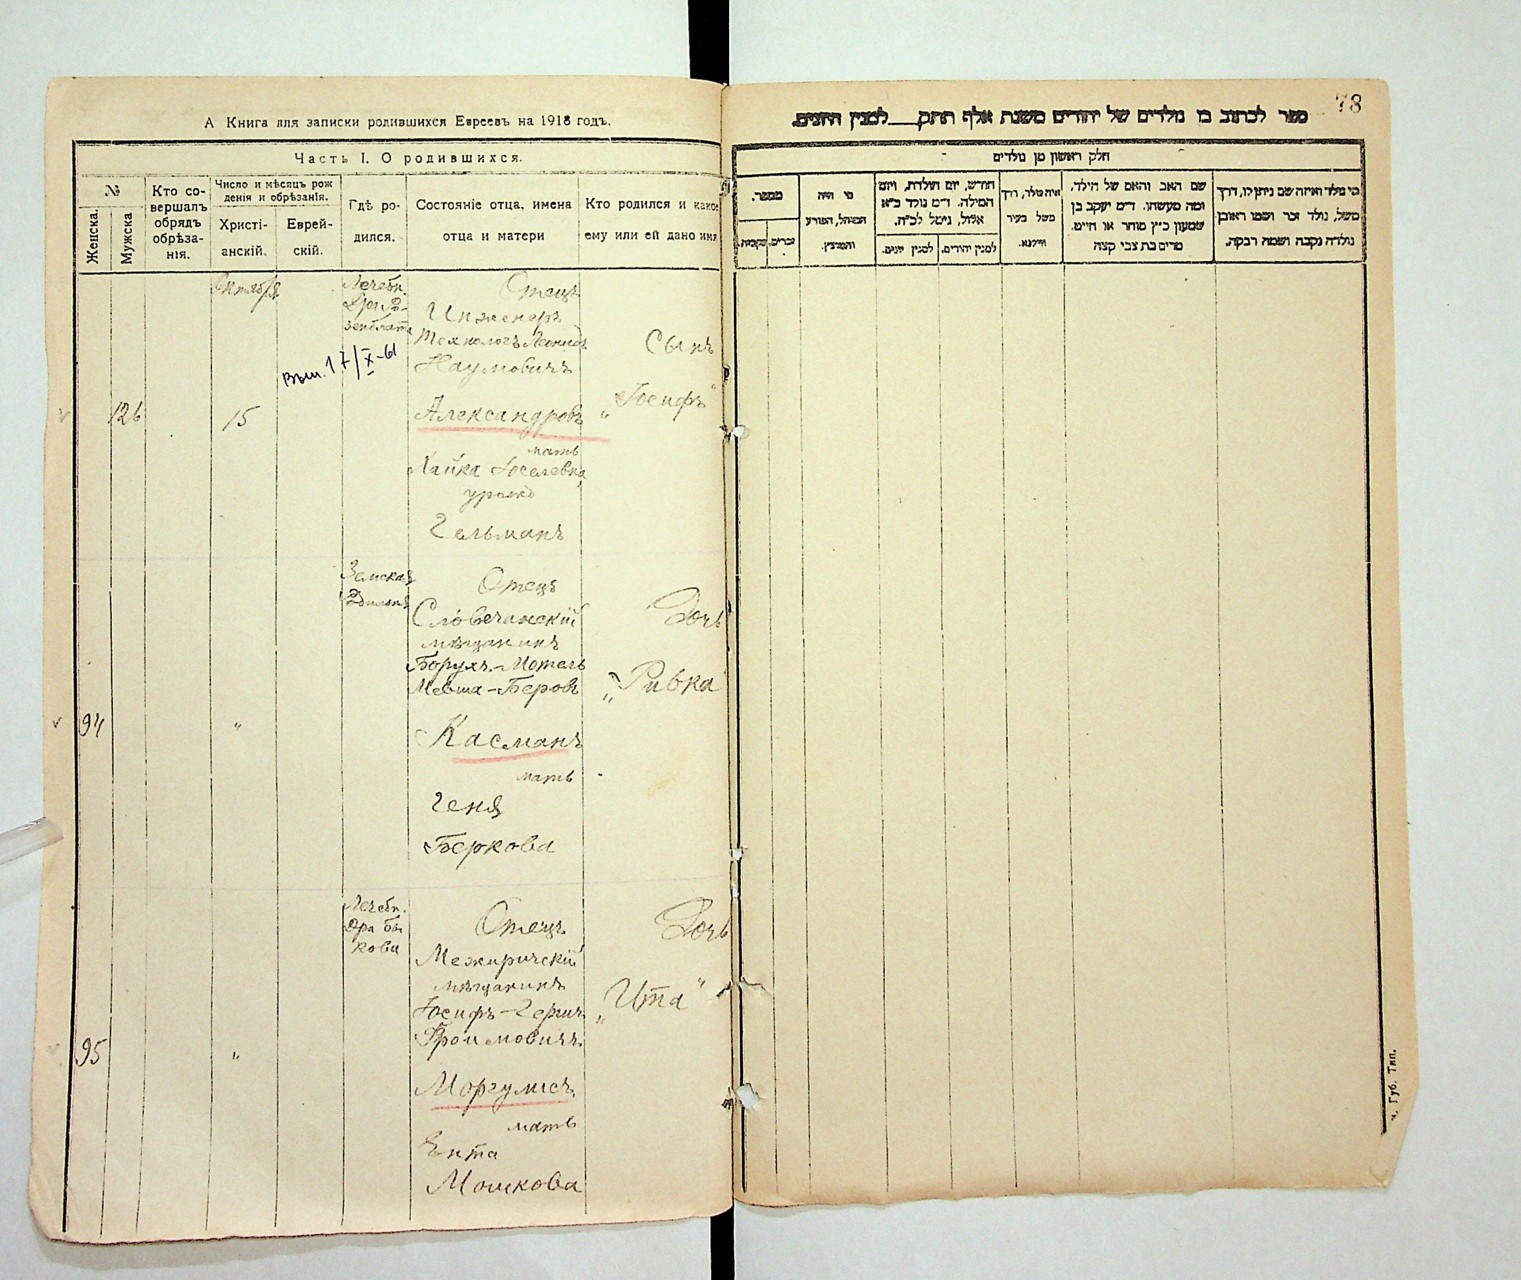 А Книга для записки родившихся Евреевъ на 1918 годъ.
Часть I. О родившихся.
№
Женска.
Мужска
Кто со-
вершалъ
обрядъ
обрѣза-
нія.
Число и мѣсяцъ рож
денія и обрѣзанія.
Христі-
анскій.
Еврей-
скій.
Гдѣ ро-
дился.
Состояніе отца, имена
отца и матери
Кто родился и какое
ему или ей дано имя
Октября
126
15
Выш. 17/X-61
Лечебн.
Д-ра Ро-
зенблата
Отецъ
Инженеръ
Технологъ Леонидъ
Наумовичъ
Александровъ
мать
Хайка Іоселевна
урожд
Гельманъ
Сынъ
„Іосифъ"
94
"
Земская
Отецъ
Словечанскій
мѣщанинъ
Борухъ-Мотель
Мевша-Беровъ
Касманъ
мать
Геня
Беркова
Дочь
„Ривка
95
"
Лечебн.
Дра Бы
кова
Отецъ
Межиричскій
мѣщанинъ
Іосифъ-Герш
Фроимовичъ
Моргулисъ
мать
Ента
Мошкова
Дочь
„Ита"
78
ספר לכתוב בו נולדים של יהודים משנת אלף תתק___למנין הוצים.
חלק ראשון מן נולדים
מספר.
נקבות.
זכרים.
מי היה
המוהל, הפורע
והמוצץ.
חודש, יום הולדת, ויום
המילה. ד״מ נולד כ״א
אלול, נימל לכ״ח.
למנין יונים.
למנין יהודים.
איה נולד, דרך
משל בעיר
ווילנא.
שם האב והאם של הילד.
ומה מעשהו. ד״מ יעקב בן
שמעון כ״ץ מוחר או חייט.
מרים בת צבי קצה
מי נולד ואיזה שם ניתן לו, דרך
משל, נולד זכר ושמו ראובן
נולדה נקבה ושמה רבקה.
Губ. Тип.